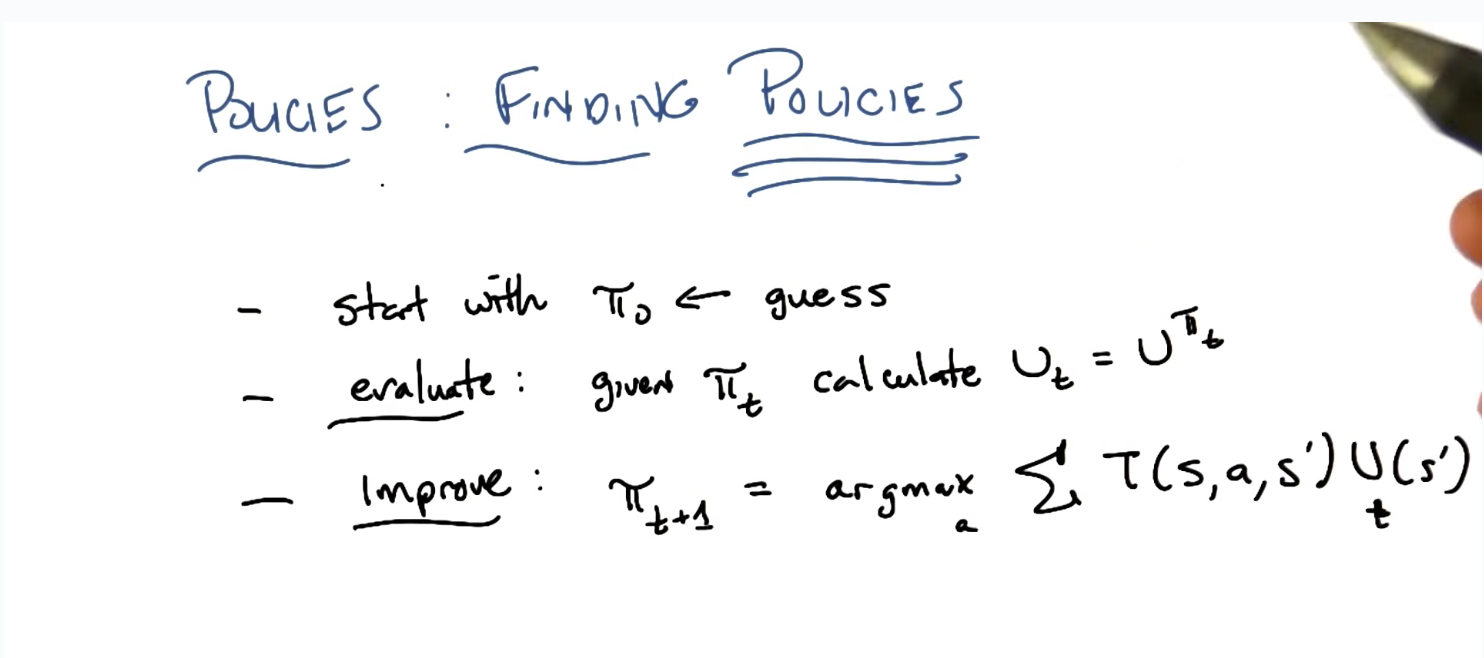 POLICIES : FINDING POLICIES
- start with π₀ ← guess
- evaluate : given π_t calculate U_t = U^π_t
- Improve : π_t+1 = argmax_a ∑ T(s,a,s') U_t(s')